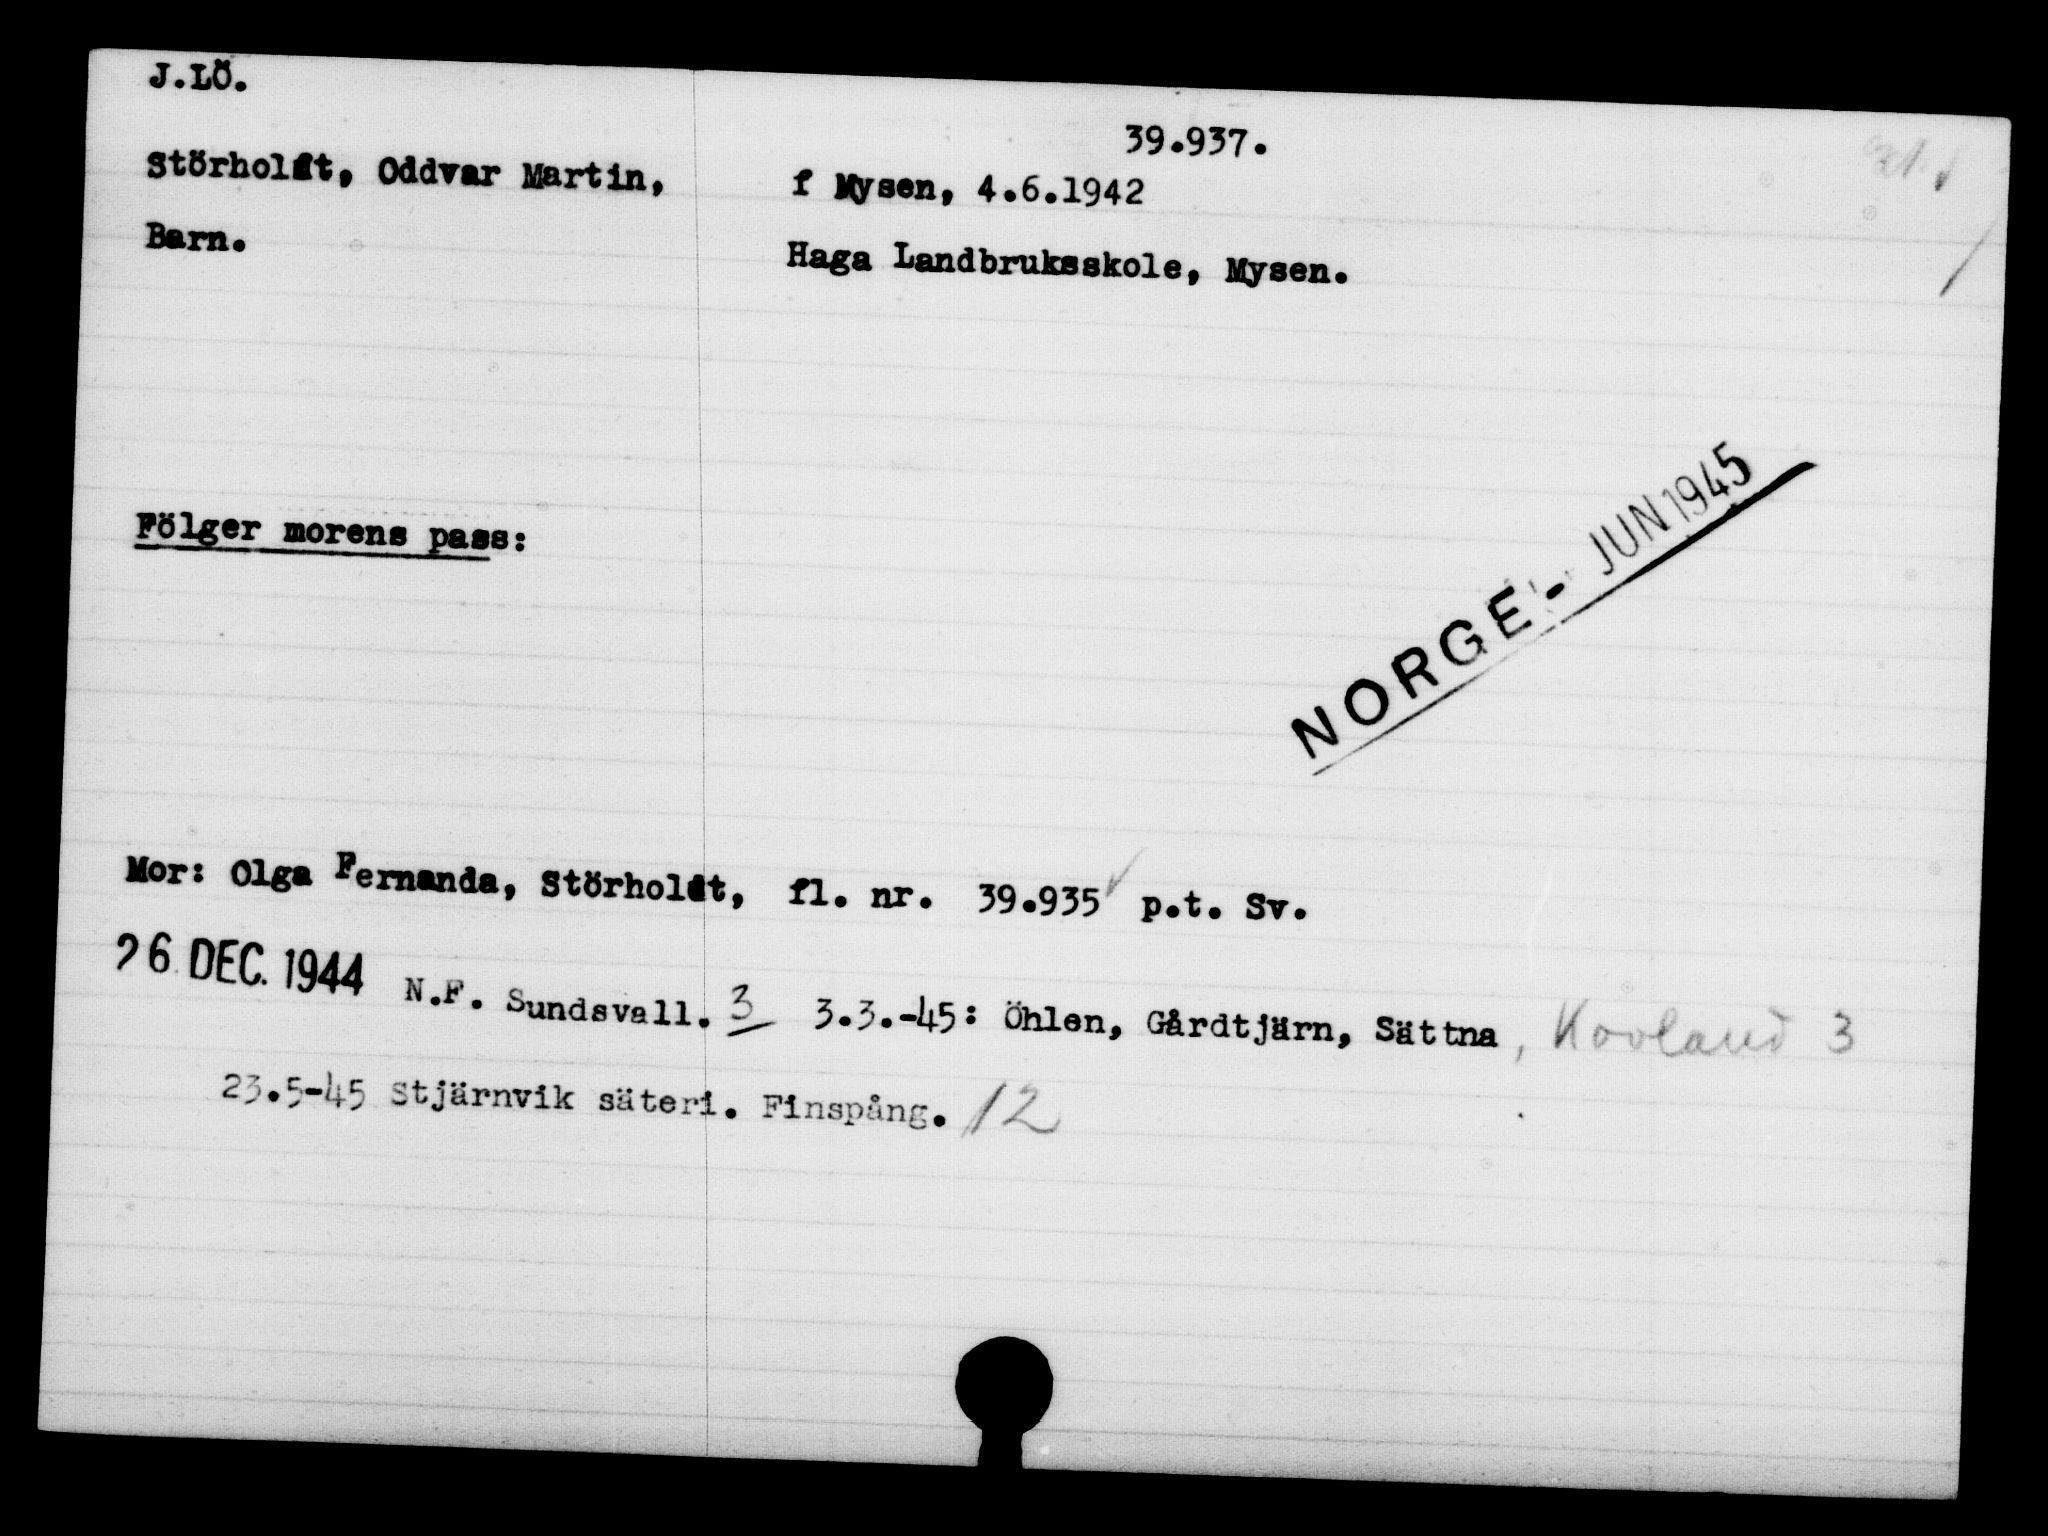 J.LÖ.
39.937.
Störholt, Oddvar Martin, f Mysen, 4.6.1942
Barn. Haga Landbruksskole, Mysen.
Fölger morens pass:
NORGE - JUN 1945
Mor: Olga Fernanda, Störholt, fl. nr. 39.935 p.t. Sv.
26 DEC. 1944 N.F. Sundsvall. 3 3.3.-45: Öhlen, Gårdtjärn, Sättna, Kovland 3
23.5-45 Stjärnvik säteri. Finspång. 12